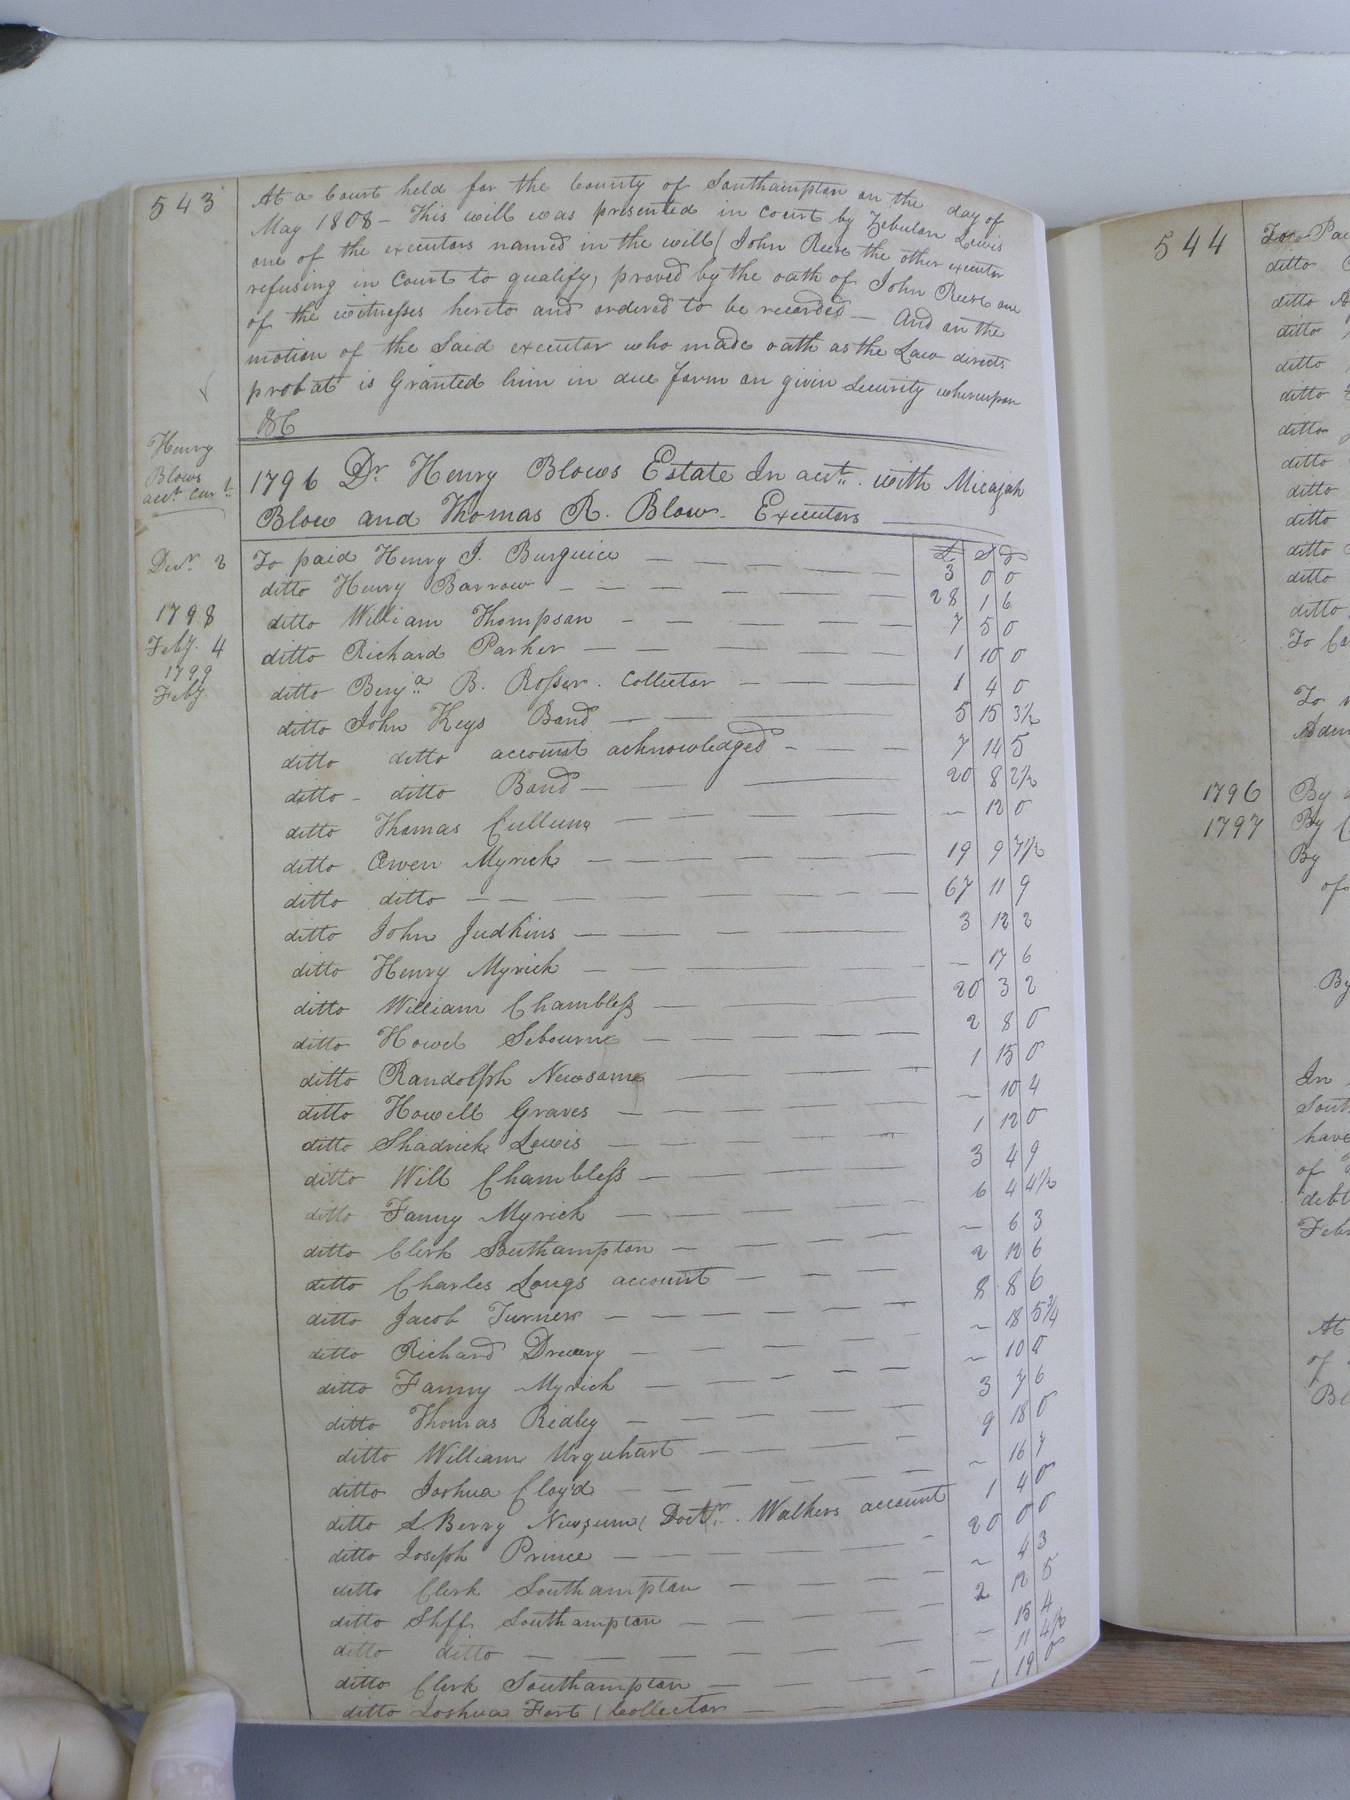 543
At a Court held for the County of Southampton on the day of
May 1808 – This will was presented in Court by Zebulon Lewis
one of the executors named in the will ( John Reese the other executor
refusing in Court to qualify, proved by the oath of John Reese one
of the witnesses hereto and ordered to be recorded – And on the
motion of the Said executor who made oath as the Law directs
probat is Granted him in due form on givin Security whereupon
&C
Henry
Blows
acct. Curt.
1796 Dr. Henry Blows Estate In acct. with Micajah
Blow and Thomas R. Blow Executors
£ S D
Decr. 2 To paid Henry J. Burguice 3 0 0
ditto Henry Barrow 28 1 6
1798 ditto William Thompson 7 5 0
Feby. 4 ditto Richard Parker 1 10 0
1799
Feby. ditto Benja. B. Rosser Collector 1 4 0
ditto John Keys Bond 5 15 3½
ditto ditto account acknowledged 7 14 5
ditto ditto Bond 20 8 2½
ditto Thomas Cullum – 12 0
ditto Owen Myrick 19 9 7½
ditto ditto 67 11 9
ditto John Judkins 3 12 2
ditto Henry Myrick – 17 6
ditto William Chambless 20 3 2
ditto Howel Sebourne 2 8 0
ditto Randolph Newsome 1 15 0
ditto Howell Graves – 10 4
ditto Shadrick Lewis 1 12 0
ditto Will Chambless 3 4 9
ditto Fanny Myrick 6 4 4½
ditto Clerk Southampton – 6 3
ditto Charles Longs account 2 12 6
ditto Jacob Turner 8 8 6
ditto Richard Drewry – 18 5¾
ditto Fanny Myrick – 10 0
ditto Thomas Ridley 3 7 6
ditto William Urquhart 9 18 0
ditto Joshua Cloyd – 16 7
ditto L. Berry Newsum ( Doctr. Walkers account 1 4 0
ditto Joseph Prince 20 0 0
ditto Clerk Southampton – 4 3
ditto Shff Southampton 2 12 5
ditto ditto – 15 4
ditto Clerk Southampton – 11 4½
ditto Joshua Fort ( Collector 1 19 0
544
ditto
ditto
ditto
ditto
ditto
ditto
ditto
ditto
ditto
ditto
ditto
ditto
1796 By
1797 By
By
By
In
have
of
debt
At
of